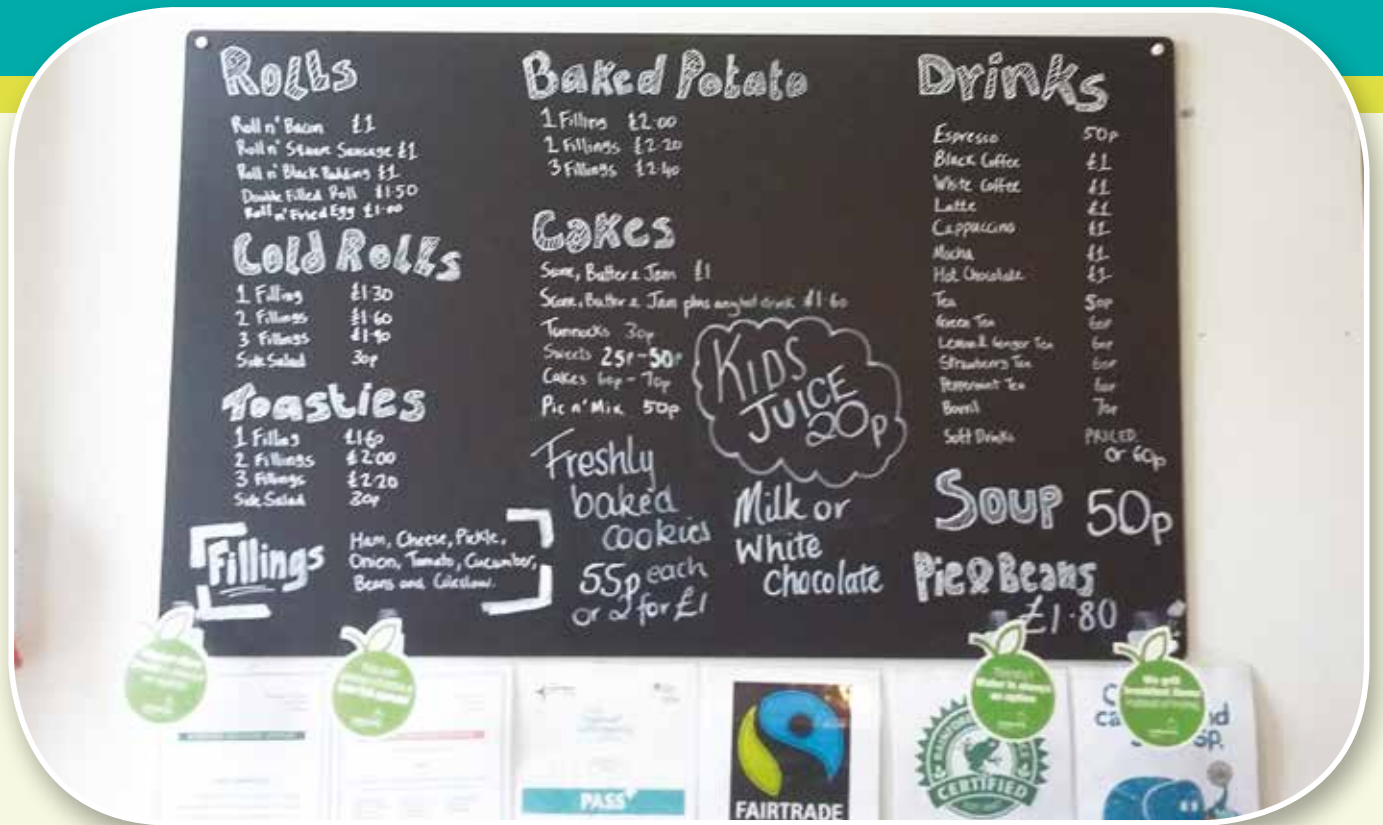 Rolls
Roll n' Bacon £1
Roll n' Square Sausage £1
Roll n' Black Pudding £1
Double Filled Roll £1·50
Roll n' Fried Egg £1·00
Cold Rolls
1 Filling £1·30
2 Fillings £1·60
3 Fillings £1·90
Side Salad 30p
Toasties
1 Filling £1·60
2 Fillings £2·00
3 Fillings £2·20
Side Salad 30p
Fillings
Ham, Cheese, Pickle,
Onion, Tomato, Cucumber,
Beans and Coleslaw.
Baked Potato
1 Filling £2·00
2 Fillings £2·20
3 Fillings £2·40
Cakes
Scone, Butter & Jam £1
Scone, Butter & Jam plus any hot drink £1·60
Tunnocks 30p
Sweets 25p-50p
Cakes 60p-70p
Pic n' Mix 50p
KIDS
JUICE
20p
Freshly
baked
cookies
55p each
or 2 for £1
Milk or
White
chocolate
Drinks
Espresso 50p
Black Coffee £1
White Coffee £1
Latte £1
Cappuccino £1
Mocha £1
Hot Chocolate £1
Tea 50p
Green Tea 60p
Lemon & Ginger Tea 60p
Strawberry Tea 60p
Peppermint Tea 60p
Bovril 70p
Soft Drinks PRICED
or 60p
Soup 50p
Pie & Beans
£1·80
Water is always
an option
We grill
PASS
FAIRTRADE
CERTIFIED